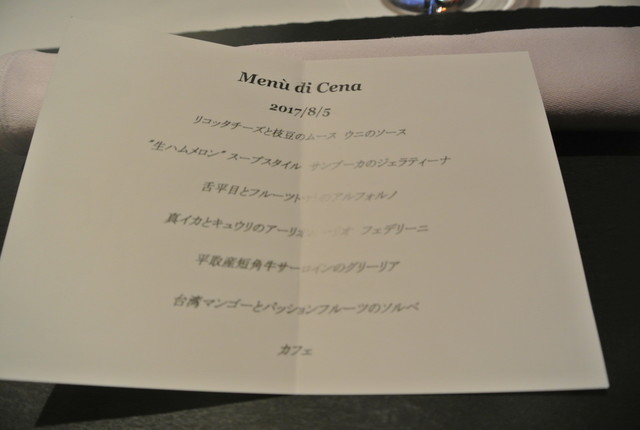 Menù di Cena
2017/8/5
リコッタチーズと枝豆のムース ウニのソース
"生ハムメロン" スープスタイル サンブーカのジェラティーナ
舌平目とフルーツト のアルフォルノ
真イカとキュウリのアーリオ オーリオ フェデリーニ
平取産短角牛サーロインのグリーリア
台湾マンゴーとパッションフルーツのソルベ
カフェ